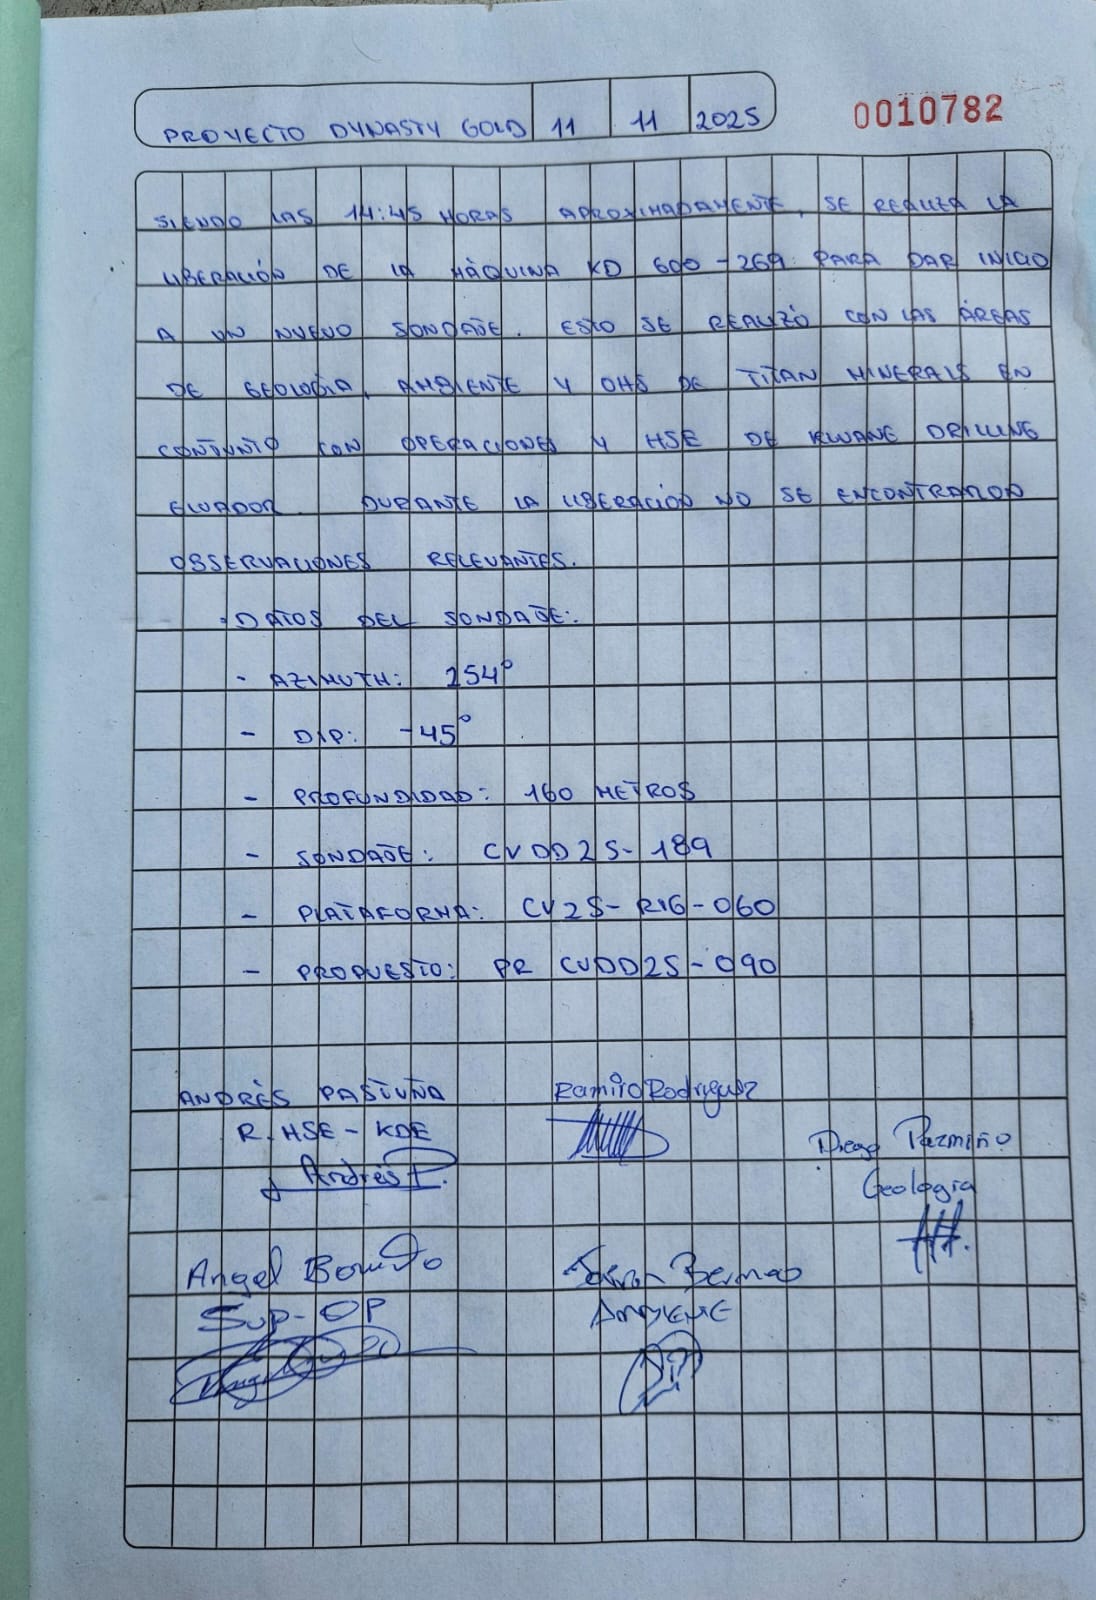 PROYECTO DYNASTY GOLD 11 11 2025
0010782
SIENDO LAS 14:45 HORAS APROXIMADAMENTE, SE REALIZA LA
LIBERACIÓN DE LA MÁQUINA KD 600-269 PARA DAR INICIO
A UN NUEVO SONDAJE. ESTO SE REALIZÓ CON LAS ÁREAS
DE GEOLOGÍA, AMBIENTE Y OHS DE TITAN MINERALS EN
CONJUNTO CON OPERACIONES Y HSE DE KLUANE DRILLING
ECUADOR. DURANTE LA LIBERACIÓN NO SE ENCONTRARON
OBSERVACIONES RELEVANTES.
· DATOS DEL SONDAJE:
- AZIMUTH: 254°
- DIP: -45°
- PROFUNDIDAD: 160 METROS
- SONDAJE: CVDD25-189
- PLATAFORMA: CV25-RIG-060
- PROPUESTO: PR CVDD25-090
ANDRÉS PASTUÑA Ramiro Rodriguez
R. HSE - KDE Diego Pazmiño
Andrés P. Geologia
Angel Bermeo
Sup-OP AMBIENTE